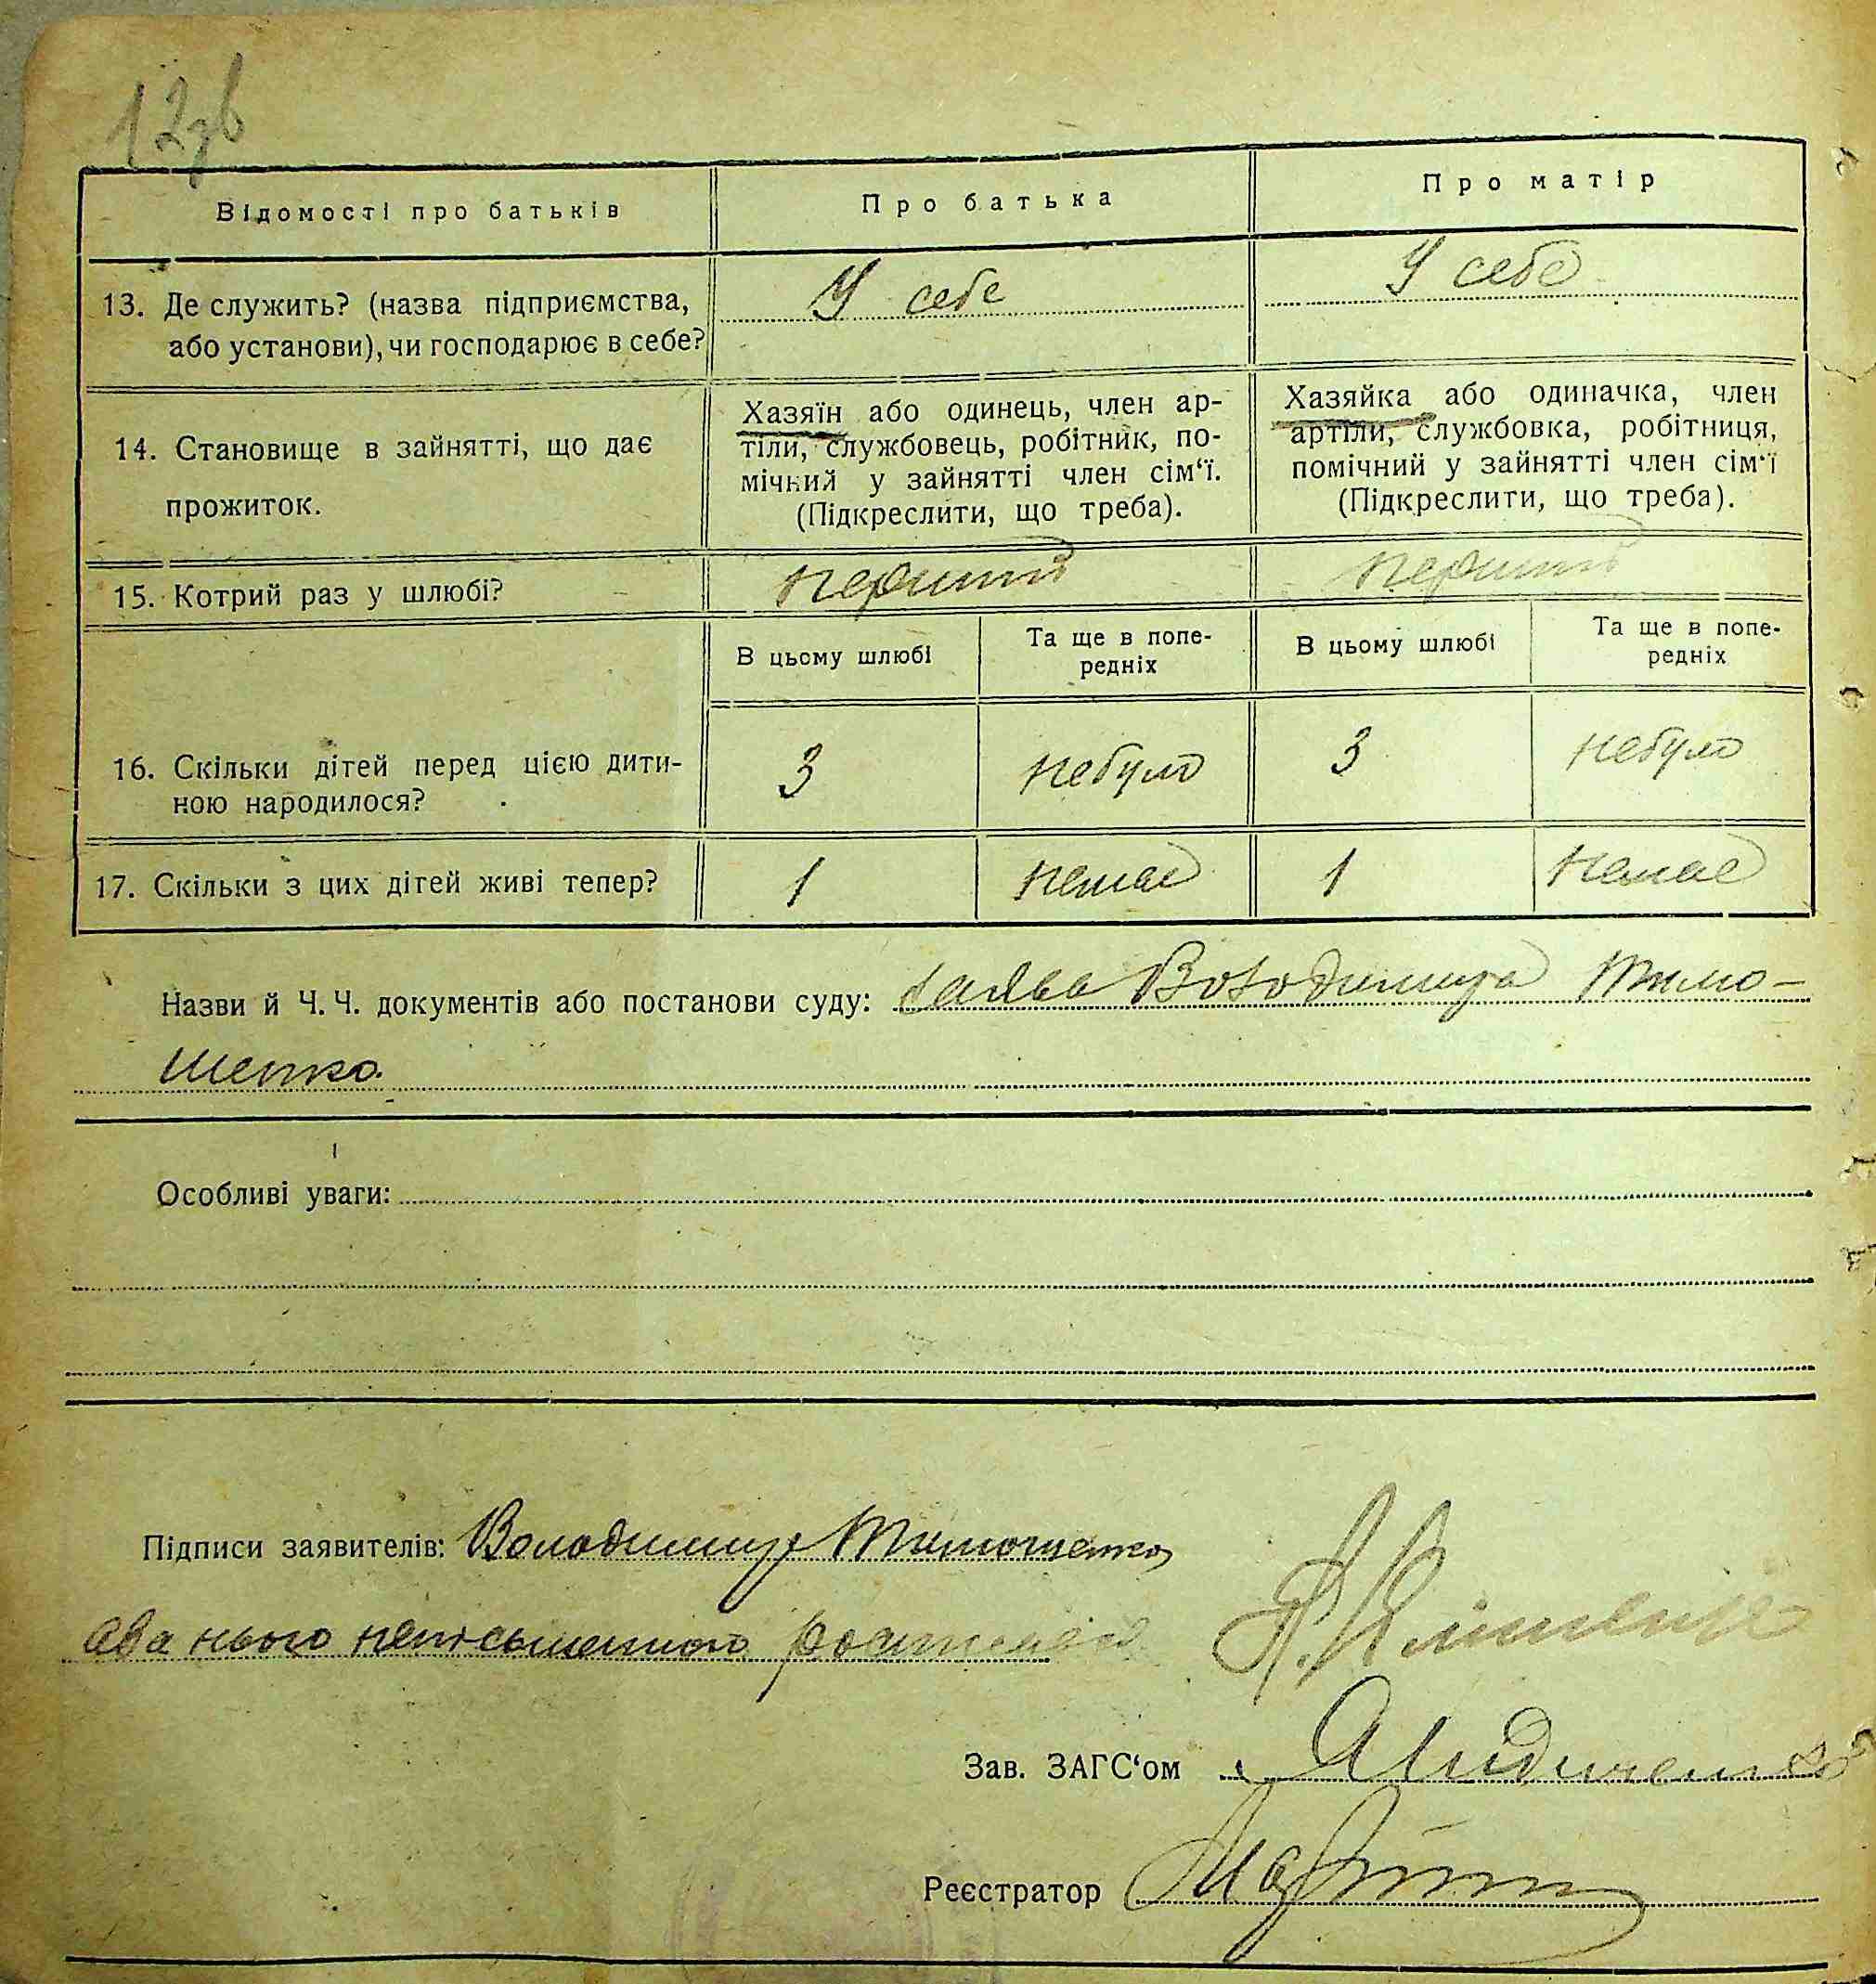 12зв
Відомості про батьків
Про батька
Про матір
13. Де служить? (назва підприємства,
або установи), чи господарює в себе?
У себе
У себе
14. Становище в зайнятті, що дає
прожиток.
Хазяїн або одинець, член ар-
тіли, службовець, робітник, по-
мічний у зайнятті член сім‘ї.
(Підкреслити, що треба).
Хазяйка або одиначка, член
артіли, службовка, робітниця,
помічний у зайнятті член сім‘ї
(Підкреслити, що треба).
15. Котрий раз у шлюбі?
перший
перший
В цьому шлюбі
Та ще в попе-
редніх
В цьому шлюбі
Та ще в попе-
редніх
16. Скільки дітей перед цією дити-
ною народилося?
3
небуло
3
небуло
17. Скільки з цих дітей живі тепер?
1
немає
1
немає
Назви й Ч. Ч. документів або постанови суду: Заява Володимира Тимо-
шенко.
Особливі уваги:
Підписи заявителів: Володимир Тимошенко
а за нього неписьменного
Зав. ЗАГС‘ом
Реєстратор